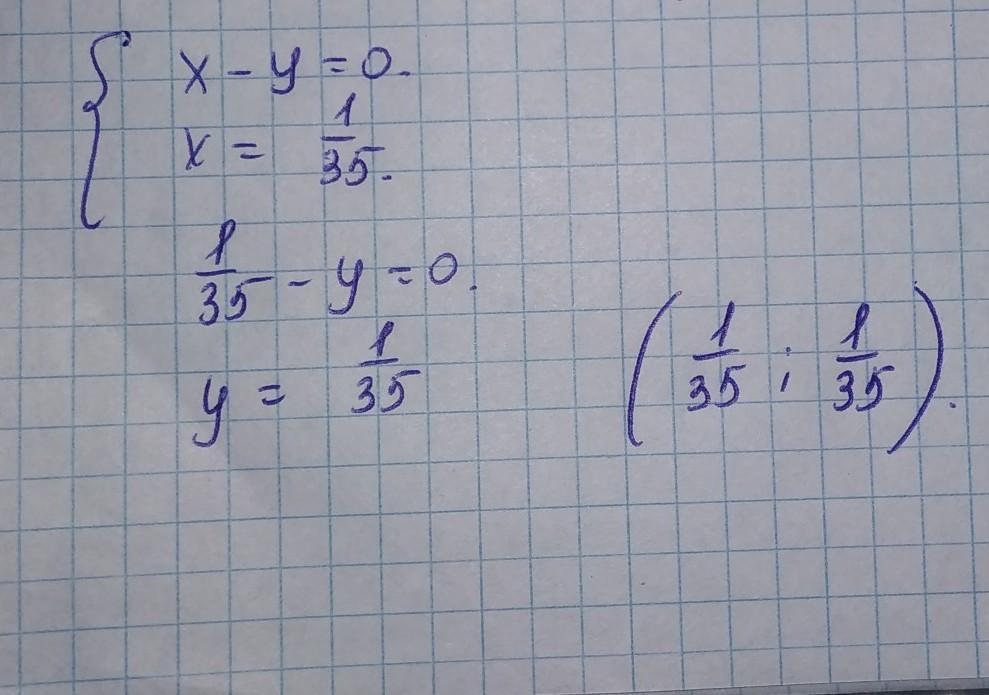 x - y = 0.
x = 1/35.
1/35 - y = 0.
y = 1/35
(1/35 ; 1/35).